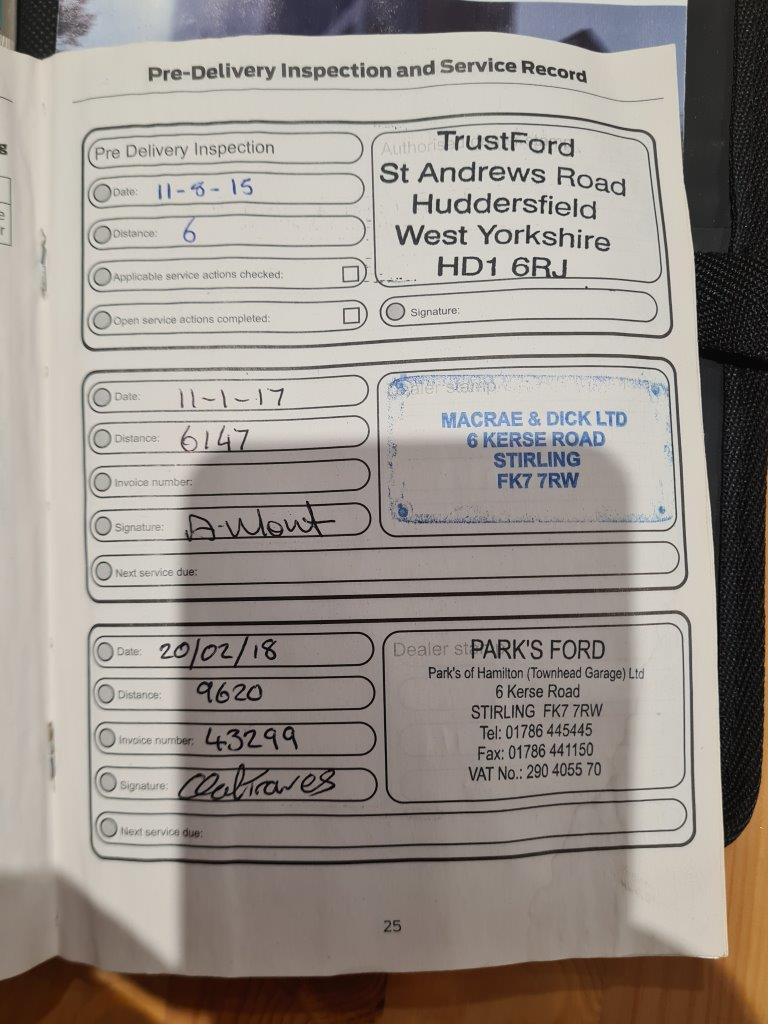 Pre-Delivery Inspection and Service Record
Pre Delivery Inspection
Date: 11-8-15
Distance: 6
Applicable service actions checked:
Open service actions completed:
TrustFord
St Andrews Road
Huddersfield
West Yorkshire
HD1 6RJ
Signature:
Date: 11-1-17
Distance: 6147
Invoice number:
Signature:
Next service due:
Dealer stamp
MACRAE & DICK LTD
6 KERSE ROAD
STIRLING
FK7 7RW
Date: 20/02/18
Distance: 9620
Invoice number: 43299
Signature:
Next service due:
PARK'S FORD
Park's of Hamilton (Townhead Garage) Ltd
6 Kerse Road
STIRLING FK7 7RW
Tel: 01786 445445
Fax: 01786 441150
VAT No.: 290 4055 70
25